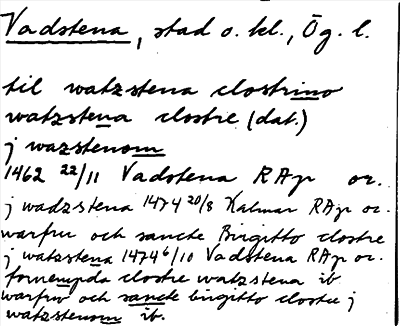 Vadstena, stad o. kl., Ög. l.
til watzstena clostrino
watzstena clostre (dat.)
j wazstenom
1462 22/11 Vadstena RAp or.
j wadzstena 1474 20/8 Kalmar RAp or.
warfru och sancte Birgitto clostre
j watzstena 1474 6/10 Vadstena RAp or.
fornempda clostre watzstena ib.
warfrw och sancte birgitto clostre j
watzstenom ib.